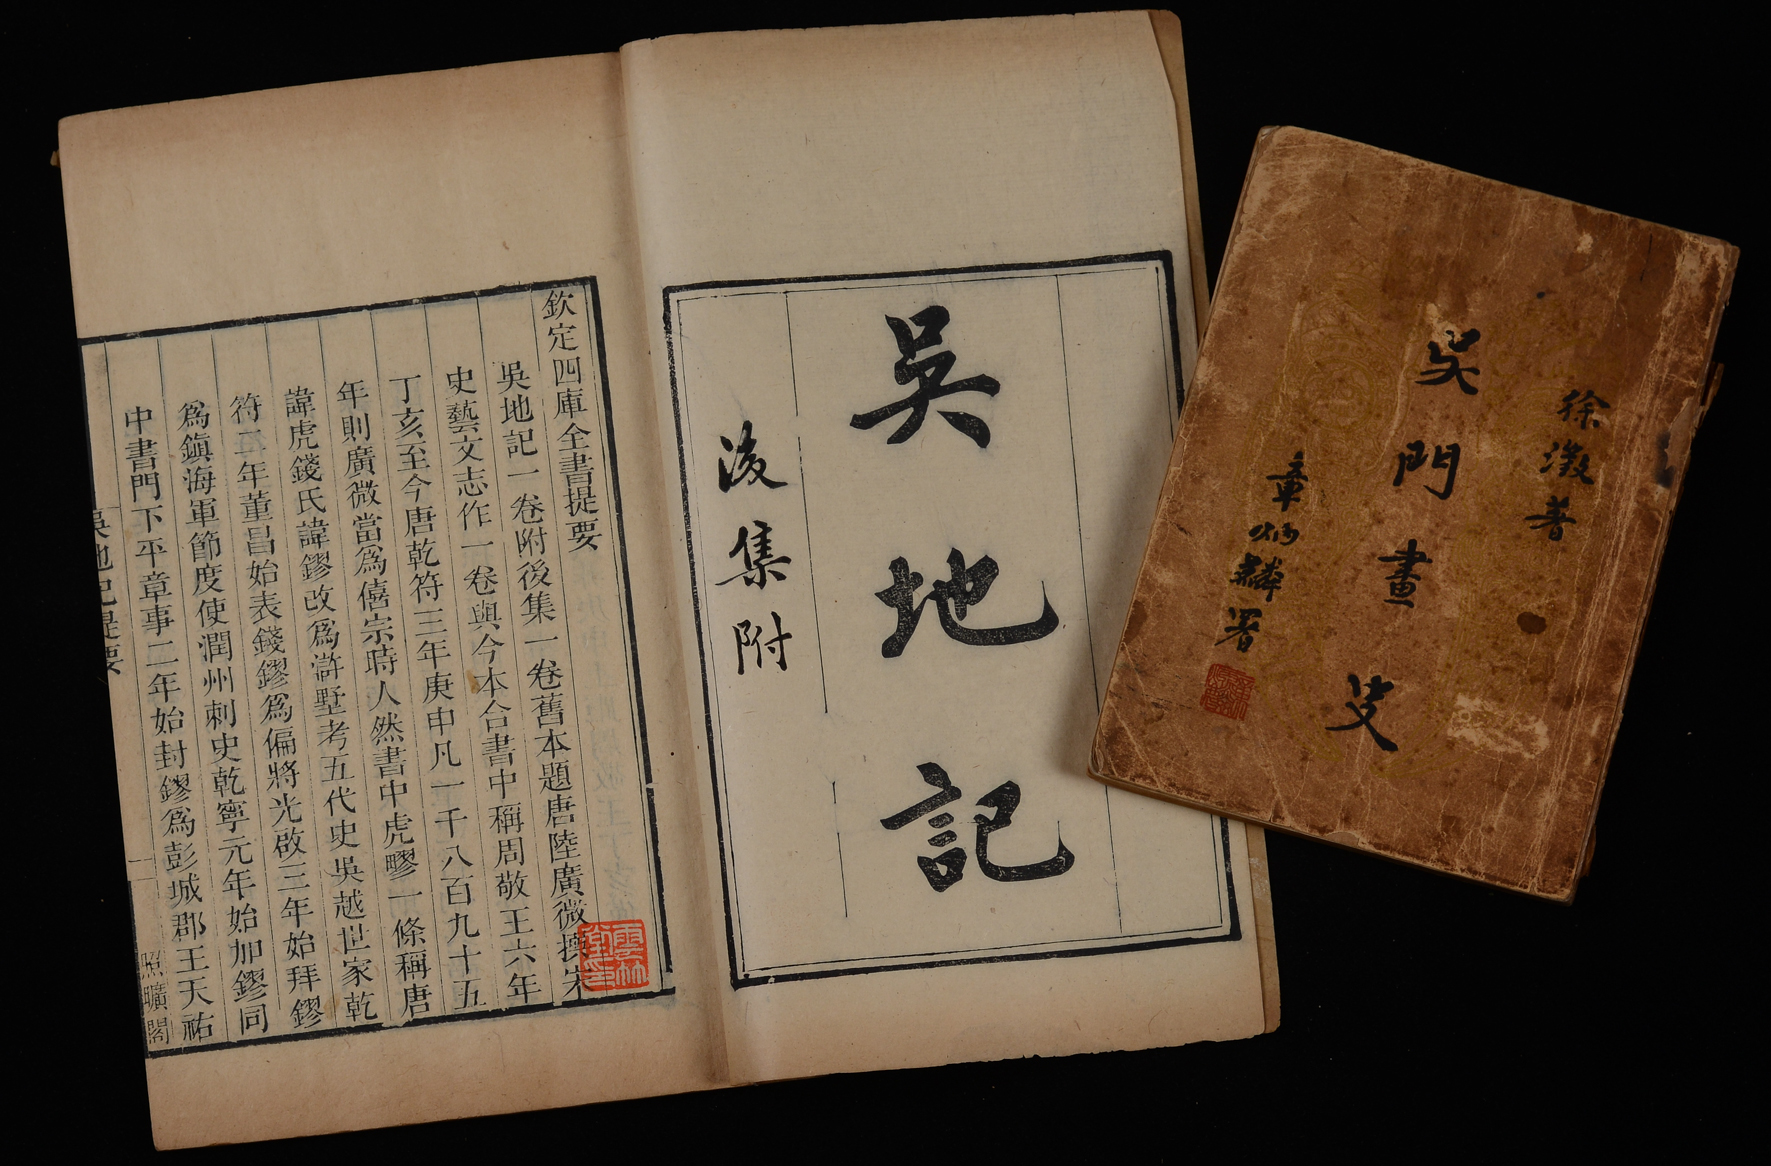 吳地記
後集附
欽定四庫全書提要
吳地記一卷附後集一卷舊本題唐陸廣微撰宋
史藝文志作一卷與今本合書中稱周敬王六年
丁亥至今唐乾符三年庚申凡一千八百九十五
年則廣微當爲僖宗時人然書中虎疁一條稱唐
諱虎錢氏諱鏐改爲滸墅考五代史吳越世家乾
符二年董昌始表錢鏐爲偏將光啟三年始拜鏐
爲鎮海軍節度使潤州刺史乾寧元年始加鏐同
中書門下平章事二年始封鏐爲彭城郡王天祐
吳地記提要
一
照曠閣
徐澂著
吳門畫史
章炳麟署